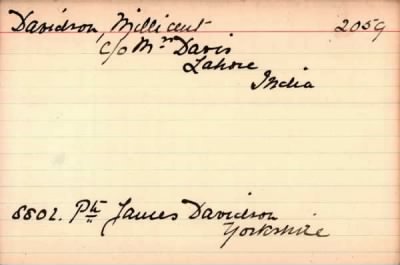 Davidson, Millicent 2059
c/o Mrs Davis
Lahore
India
5502. Pte James Davidson
Yorkshire